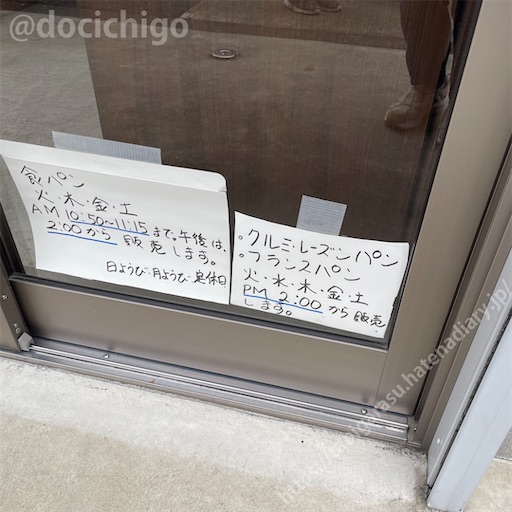 @docichigo
食パン
火・木・金・土
AM 10:50~11:15まで。午後は、
2:00から 販売します。
日ようび・月ようび・定休日
。クルミ・レーズンパン
。フランスパン
火・水・木・金・土
PM 2:00から販売
します。